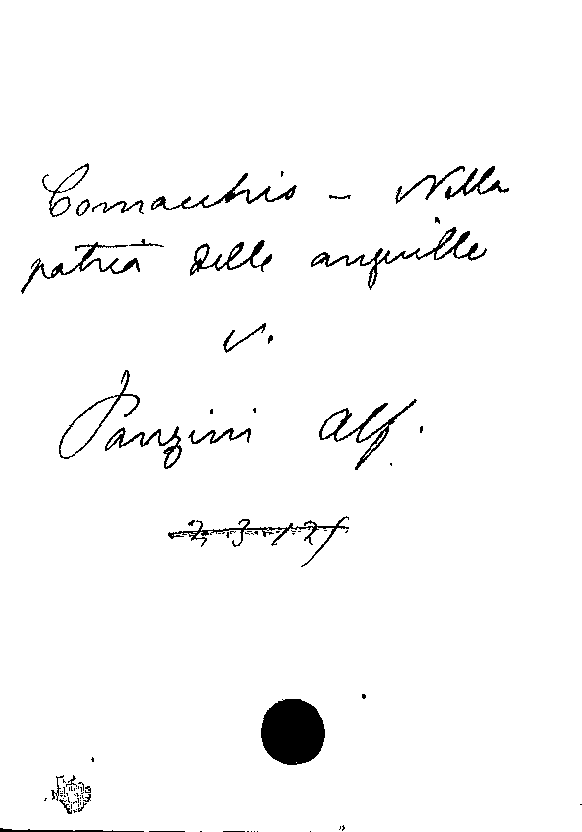 Comacchio - Nella
patria delle anguille
v.
Panzini Alf.